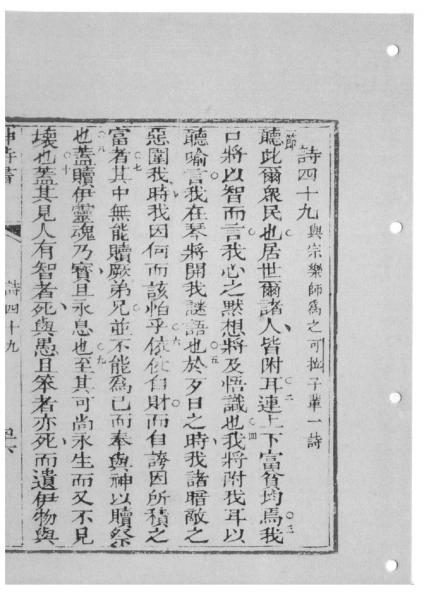 詩四十九 與宗樂師為之可拉子輩一詩
節聽此爾衆民也居世爾諸人皆附耳○二連上下富貧均焉○三我
口將以智而言我心之黙想將及悟識也○四我將附我耳以
聽喻言我在琴將開我謎語也○五於歹日之時我諸暗敵之
惡圍我時我因何而該怕乎○六倚自財而自誇因所積之
富者○七其中無能贖厥弟兄並不能為己而奉與神以贖祭
也○八蓋贖伊靈魂乃寶且永息也○九至其可尚永生而又不見
壞也○十蓋其見人有智者死與愚且笨者亦死而遺伊物與
神詩書
詩四十九